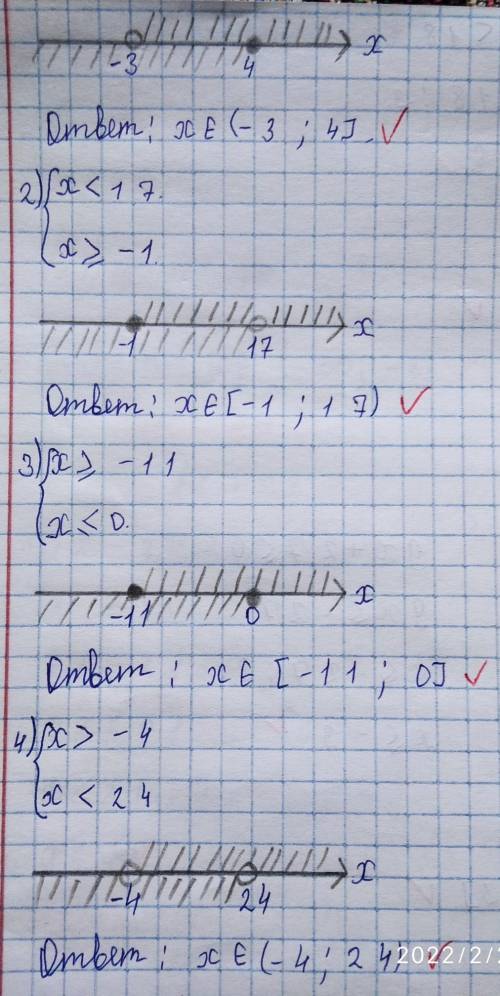 -3 4 x
Ответ: x∈(-3 ; 4].
2) {x < 17.
x ⩾ -1.
-1 17 x
Ответ: x∈[-1 ; 17)
3) {x ⩾ -11
x < 0.
-11 0 x
Ответ: x∈ [-11 ; 0]
4) {x > -4
x < 24
-4 24 x
Ответ: x∈(-4; 24)
2022/2/2